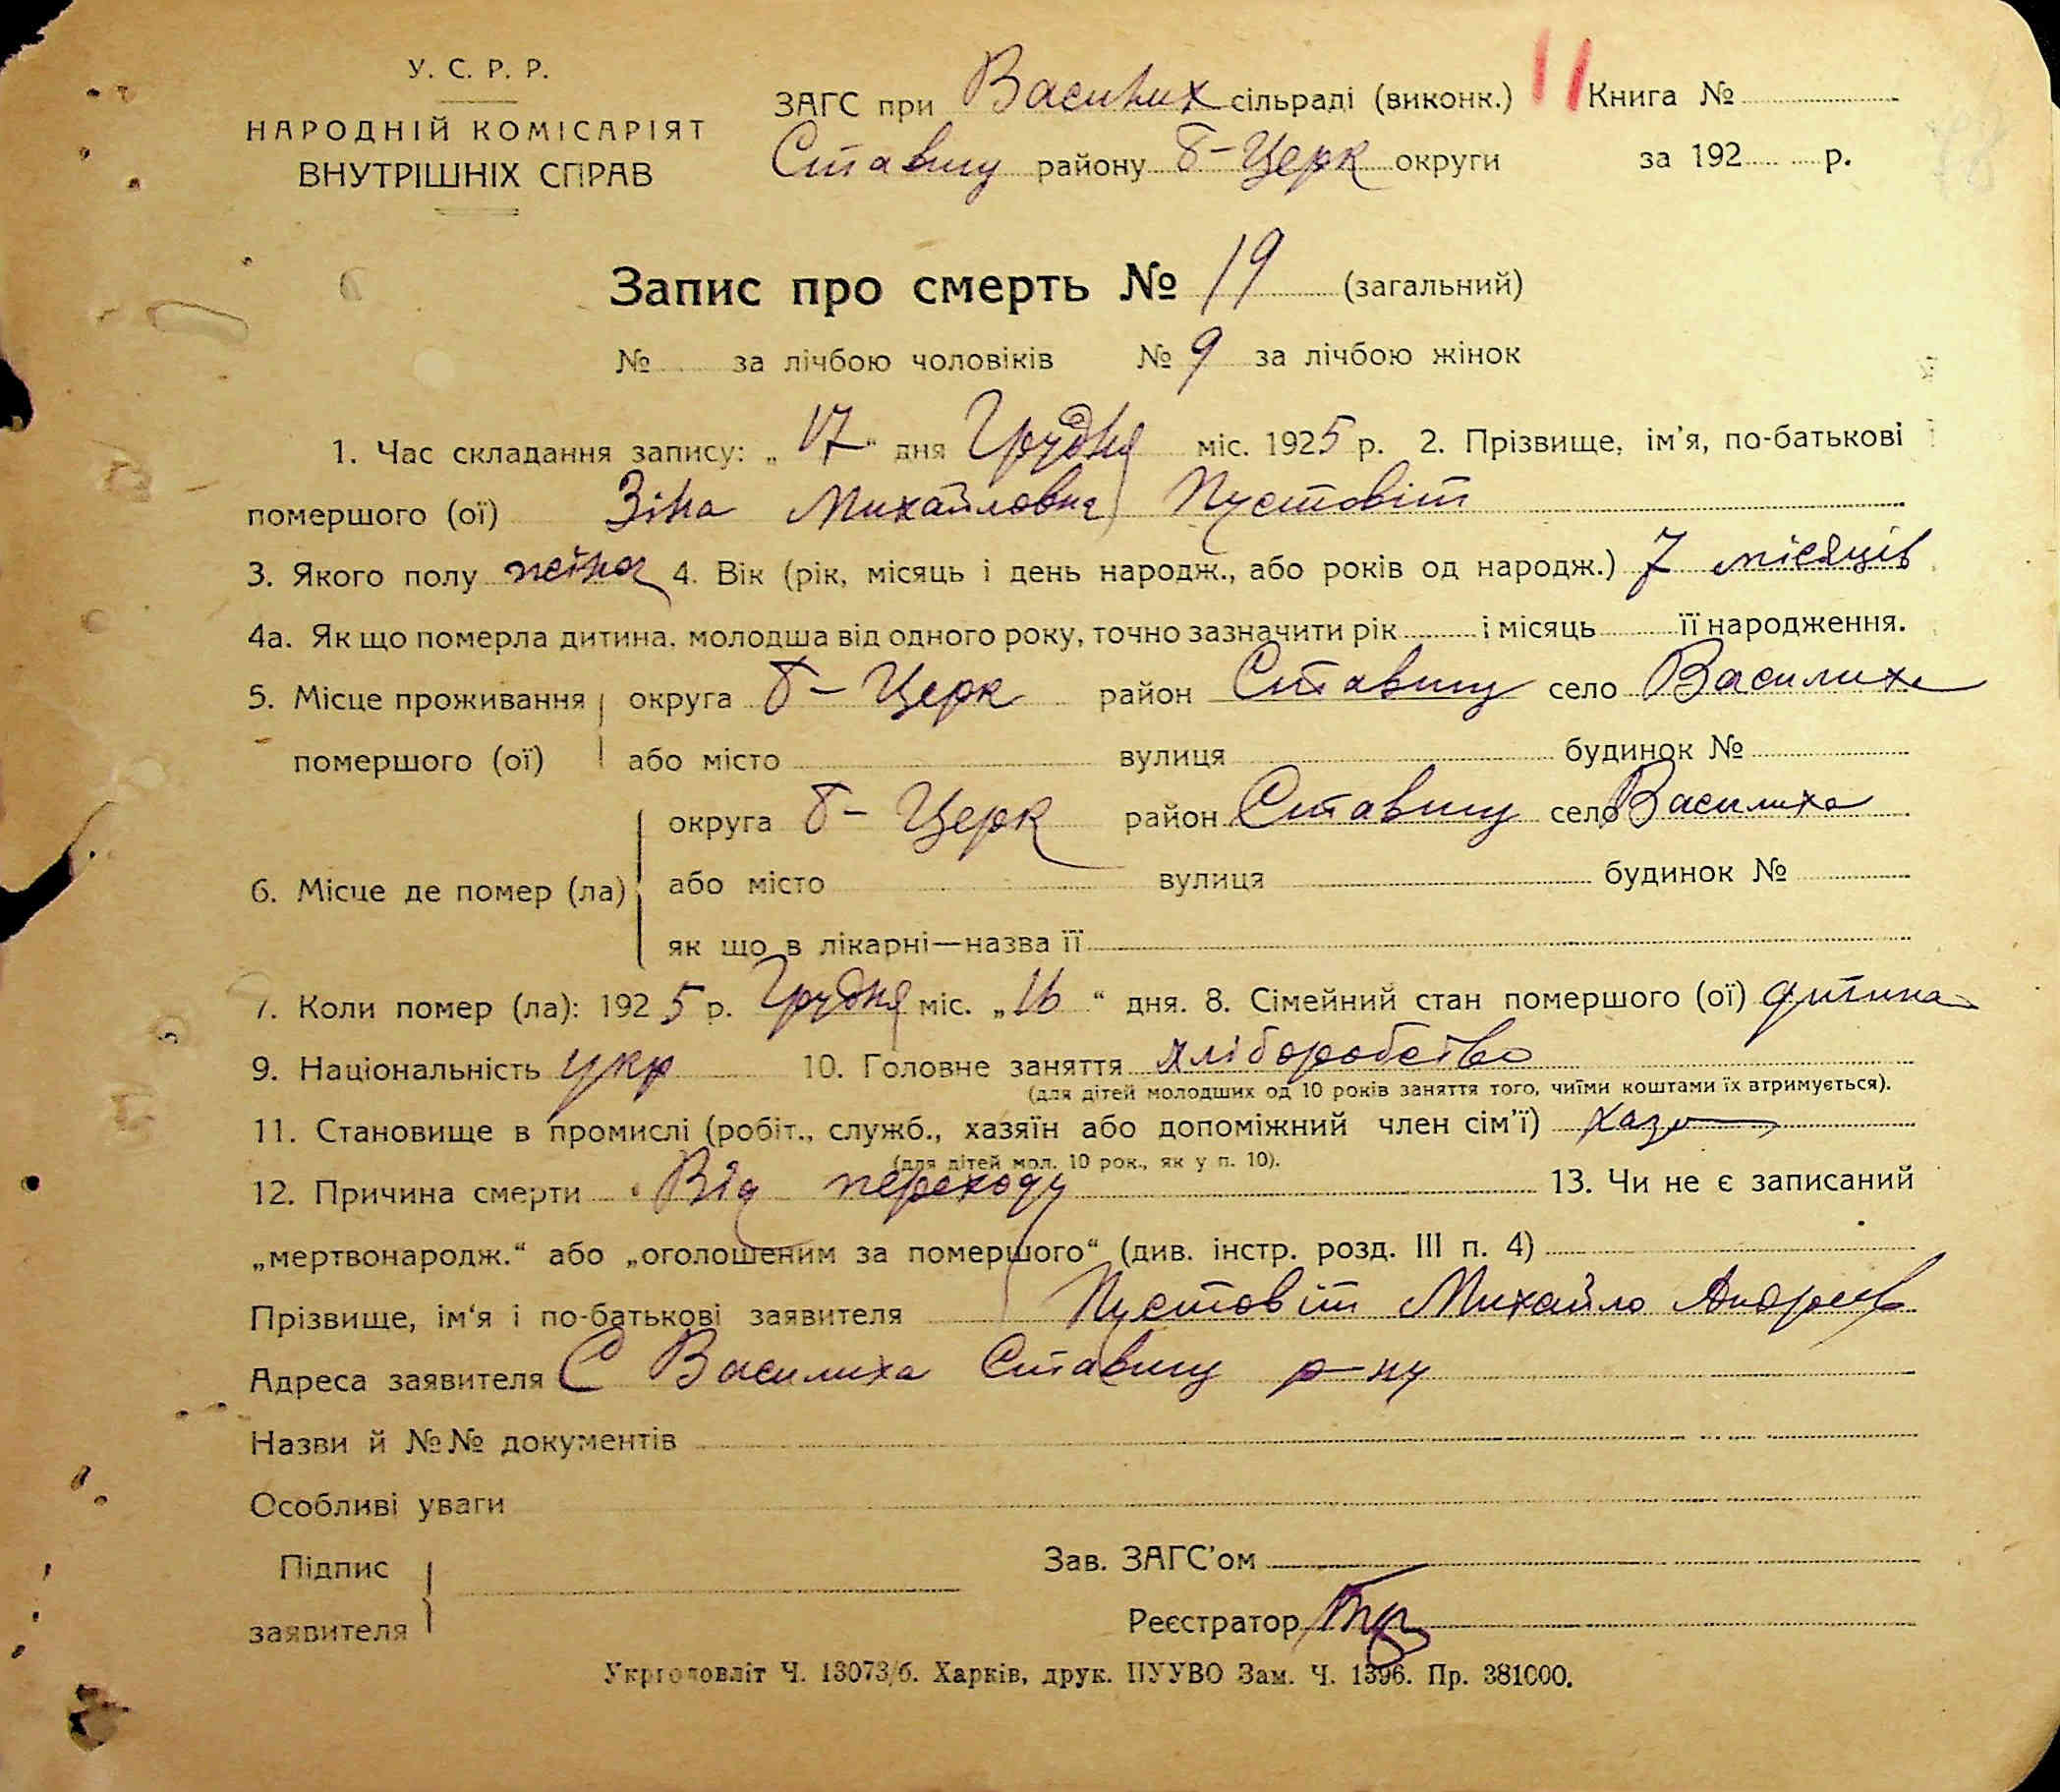 У. С. Р. Р.
НАРОДНІЙ КОМІСАРІЯТ
ВНУТРІШНІХ СПРАВ
ЗАГС при Василих сільраді (виконк.) 11 Книга №
Ставищ району Б-Церк округи за 192 р.
Запис про смерть № 19 (загальний)
№ за лічбою чоловіків № 9 за лічбою жінок
1. Час складання запису: „17“ дня Грудня міс. 1925 р. 2. Прізвище, ім'я, по-батькові
помершого (ої) Зіна Михайловна Пустовіт
3. Якого полу жіноч 4. Вік (рік, місяць і день народж., або років од народж.) 7 місяців
4а. Як що померла дитина, молодша від одного року, точно зазначити рік і місяць її народження.
5. Місце проживання округа Б-Церк район Ставищ село Василиха
помершого (ої) або місто вулиця будинок №
округа Б-Церк район Ставищ село Василиха
6. Місце де помер (ла) або місто вулиця будинок №
як що в лікарні—назва її
7. Коли помер (ла): 1925 р. Грудня міс. „16“ дня. 8. Сімейний стан помершого (ої) дитина
9. Національність укр 10. Головне заняття хліборобство
(для дітей молодших од 10 років заняття того, чиїми коштами їх втримується).
11. Становище в промислі (робіт., служб., хазяїн або допоміжний член сім'ї)
(для дітей мол. 10 рок., як у п. 10).
12. Причина смерти Від переходу 13. Чи не є записаний
„мертвонародж.“ або „оголошеним за помершого“ (див. інстр. розд. III п. 4)
Прізвище, ім'я і по-батькові заявителя Пустовіт Михайло Андреев
Адреса заявителя С Василиха Ставищ р-ну
Назви й №№ документів
Особливі уваги
Підпис
заявителя
Зав. ЗАГС'ом
Реєстратор
Укрголовліт Ч. 13073/б. Харків, друк. ПУУВО Зам. Ч. 1396. Пр. 381000.